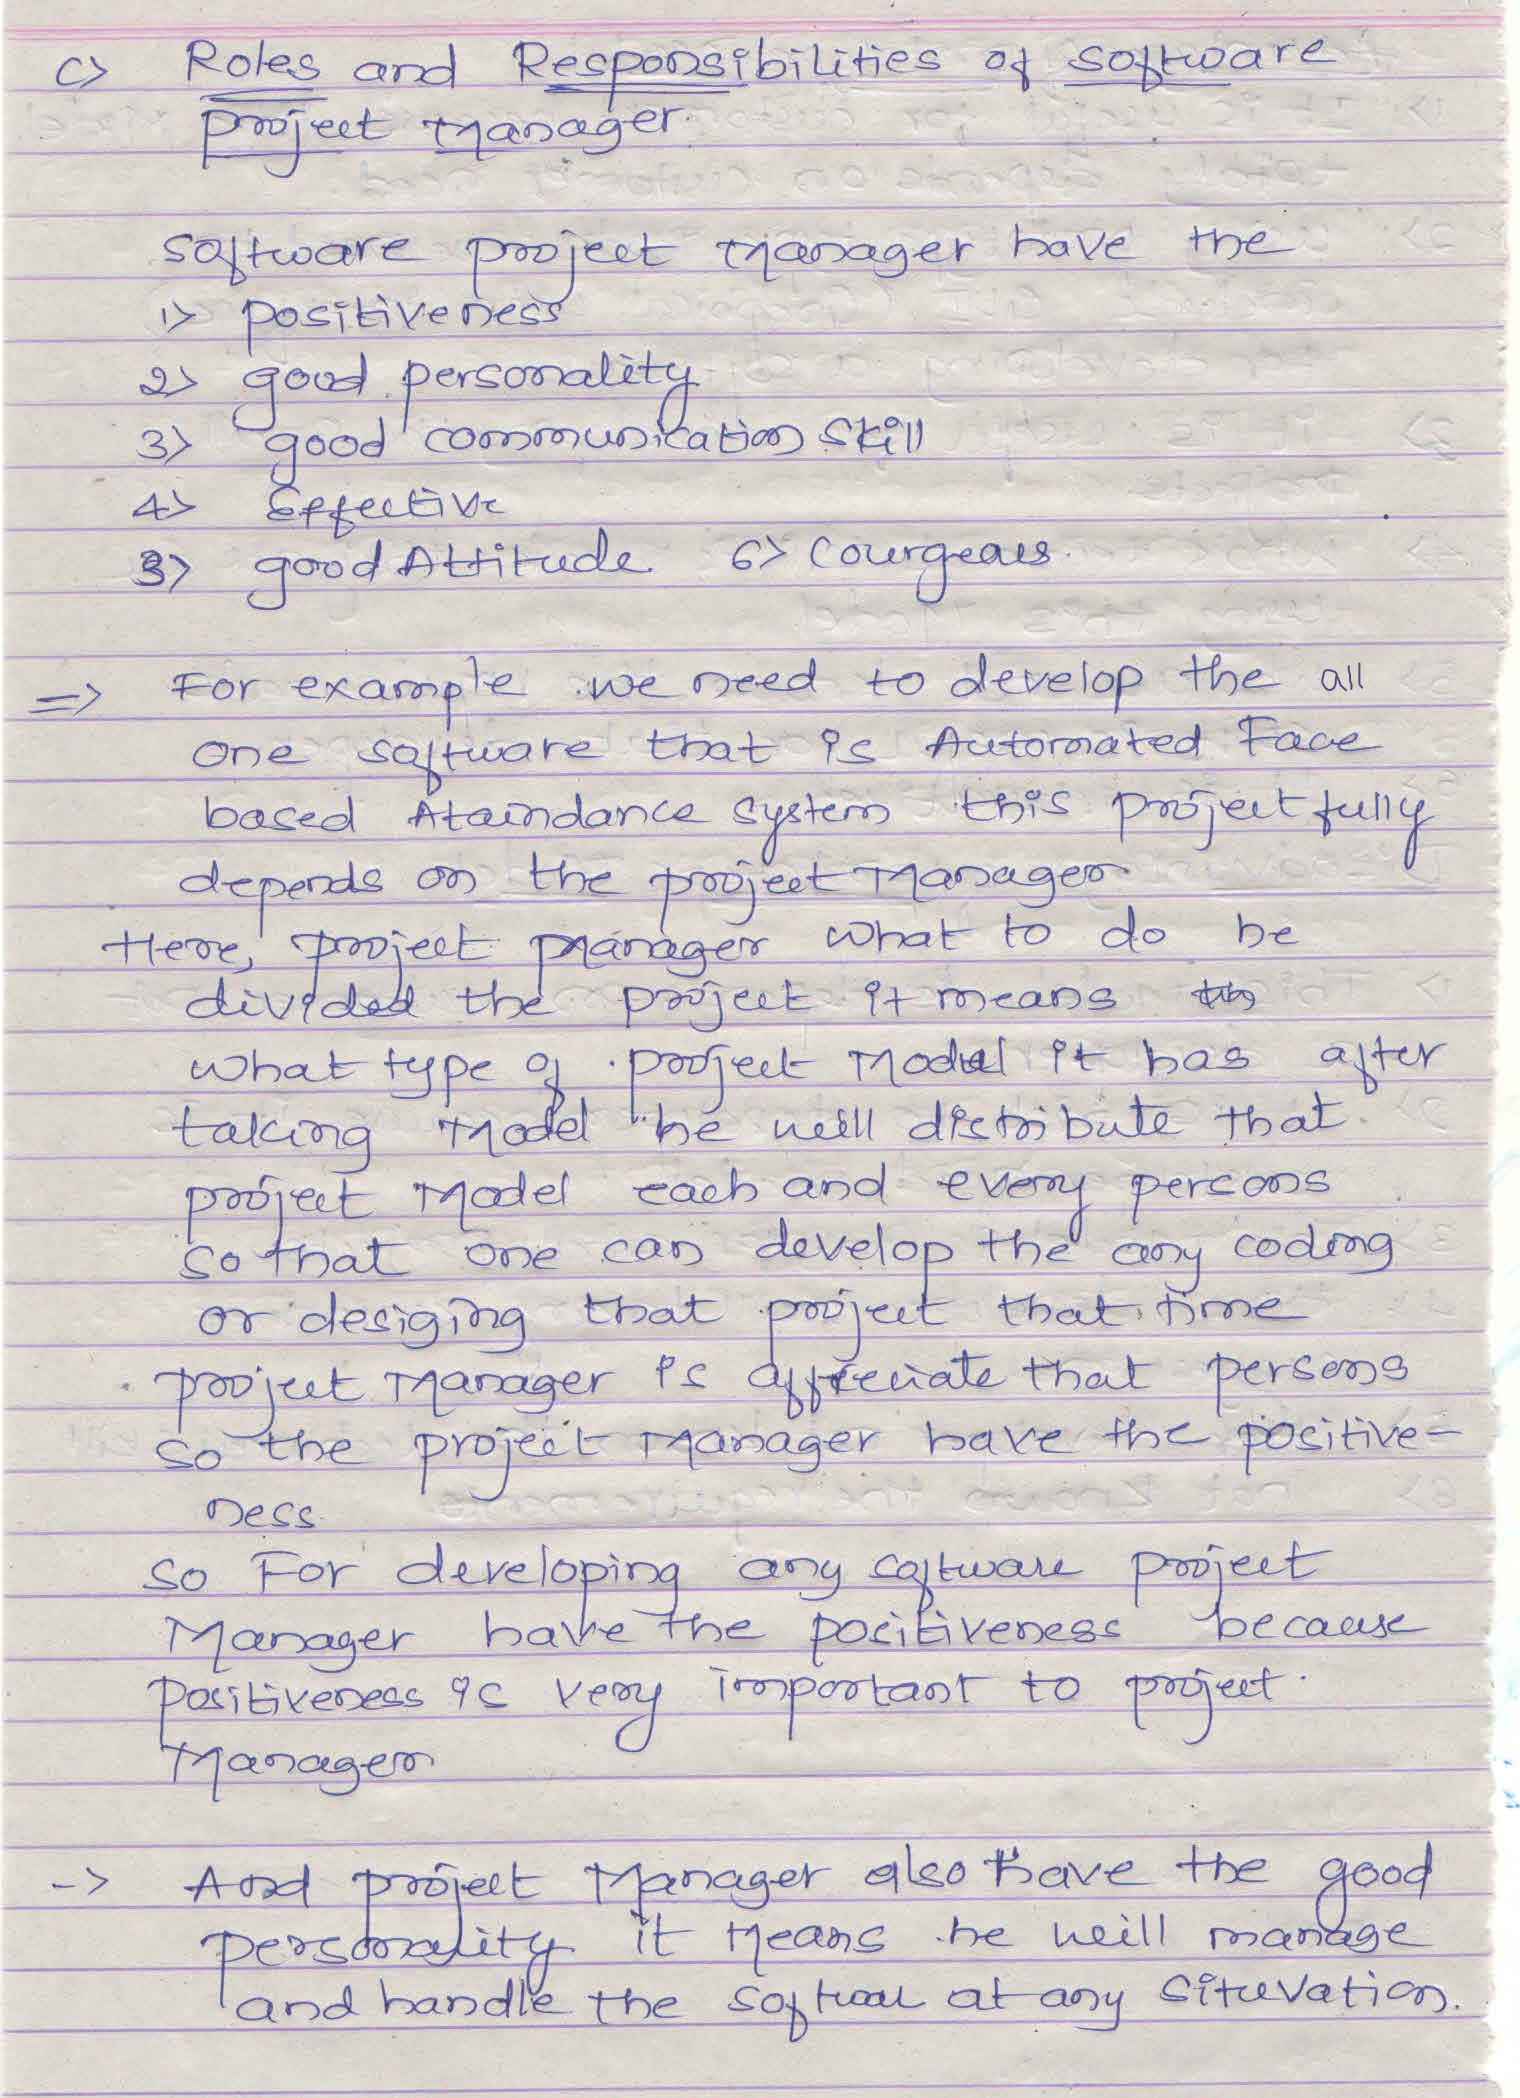 C> Roles and Responsibilities of software
project Manager.
software project Manager have the
1> positiveness
2> good personality
3> good communication skill
4> Effective
5> good Attitude 6> Courgeaus.
=> For example we need to develop the all
one software that is Automated Face
based Ataindance system this project fully
depends on the project Manager
Here, project manager what to do he
divided the project it means
what type of project Model it has after
taking Model he will distribute that
project Model each and every persons
so that one can develop the any coding
or desiging that project that time
project Manager is appreciate that persons
so the project Manager have the positive-
ness
so For developing any software project
Manager have the positiveness because
positiveness is very important to project
Manager
-> And project Manager also have the good
personality it Means he will manage
and handle the softwar at any Situvation.